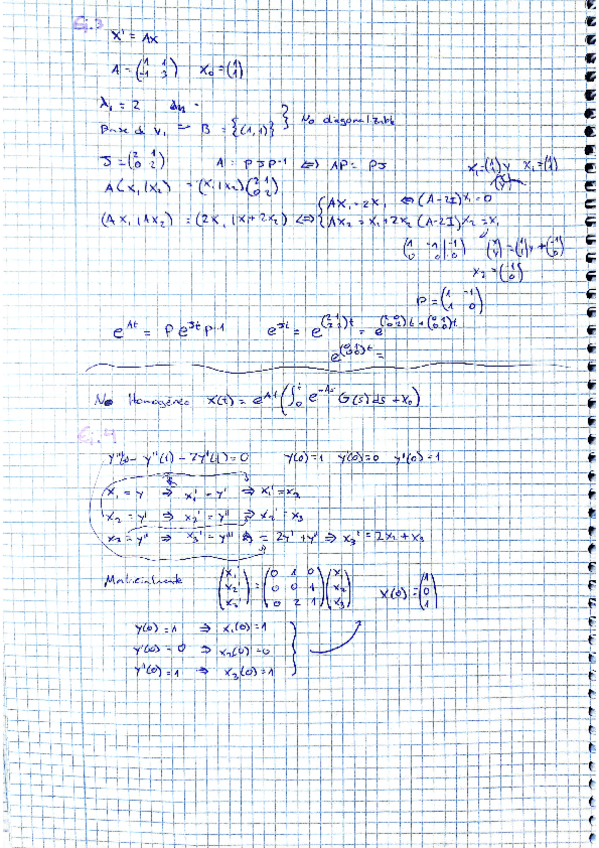 Ej.3
X' = AX
A = (1 1; -1 3) X₀ = (1; 1)
λ₁ = 2
Base de V₁ ⇒ B = {(1,1)} } No diagonalizable
J = (2 1; 0 2) A = PJP⁻¹ ⇔ AP = PJ
A(X₁|X₂) = (X₁|X₂)(2 1; 0 2)
(AX₁|AX₂) = (2X₁|X₁+2X₂) ⇔ { AX₁ = 2X₁ ⇔ (A-2I)X₁ = 0
AX₂ = X₁ + 2X₂ (A-2I)X₂ = X₁
(1 -1 | -1; 0 0 | 0) (x; y) = (1; 1)y + (-1; 0)
X₂ = (-1; 0)
P = (1 -1; 1 0)
e^{At} = P e^{Jt} P⁻¹ e^{Jt} = e^{(2 1; 0 2)t} = e^{(2 0; 0 2)t + (0 1; 0 0)t}
e^{(0 1; 0 0)t} =
No Homogéneo X(t) = e^{At} (∫₀ᵗ e^{-As} G(s) ds + X₀)
Ej.4
y'''(t) - y''(t) - 2y'(t) = 0 y(0)=1 y'(0)=0 y''(0)=1
x₁ = y ⇒ x₁' = y' ⇒ x₁' = x₂
x₂ = y' ⇒ x₂' = y'' ⇒ x₂' = x₃
x₃ = y'' ⇒ x₃' = y''' = 2y' + y'' ⇒ x₃' = 2x₂ + x₃
Matricialmente (x₁'; x₂'; x₃') = (0 1 0; 0 0 1; 0 2 1)(x₁; x₂; x₃) X(0) = (1; 0; 1)
y(0) = 1 ⇒ x₁(0) = 1
y'(0) = 0 ⇒ x₂(0) = 0
y''(0) = 1 ⇒ x₃(0) = 1